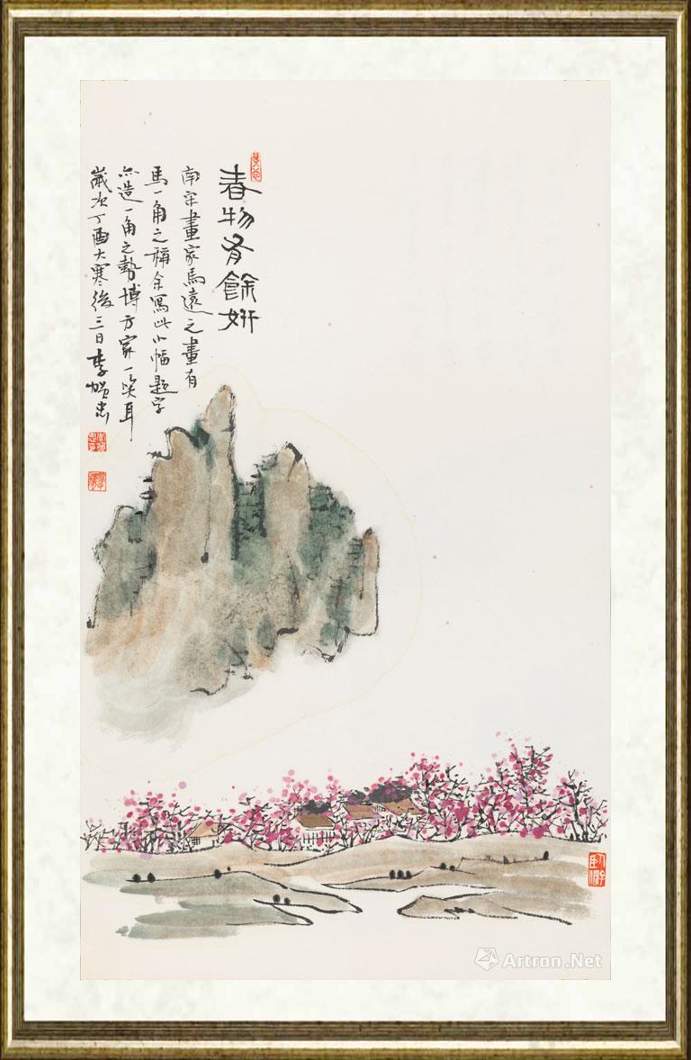 春物有餘妍
南宋畫家馬遠之畫有
馬一角之稱余寫此小幅題字
亦造一角之勢博方家一笑耳
歲次丁酉大寒後三日李恒忠
Artron.Net